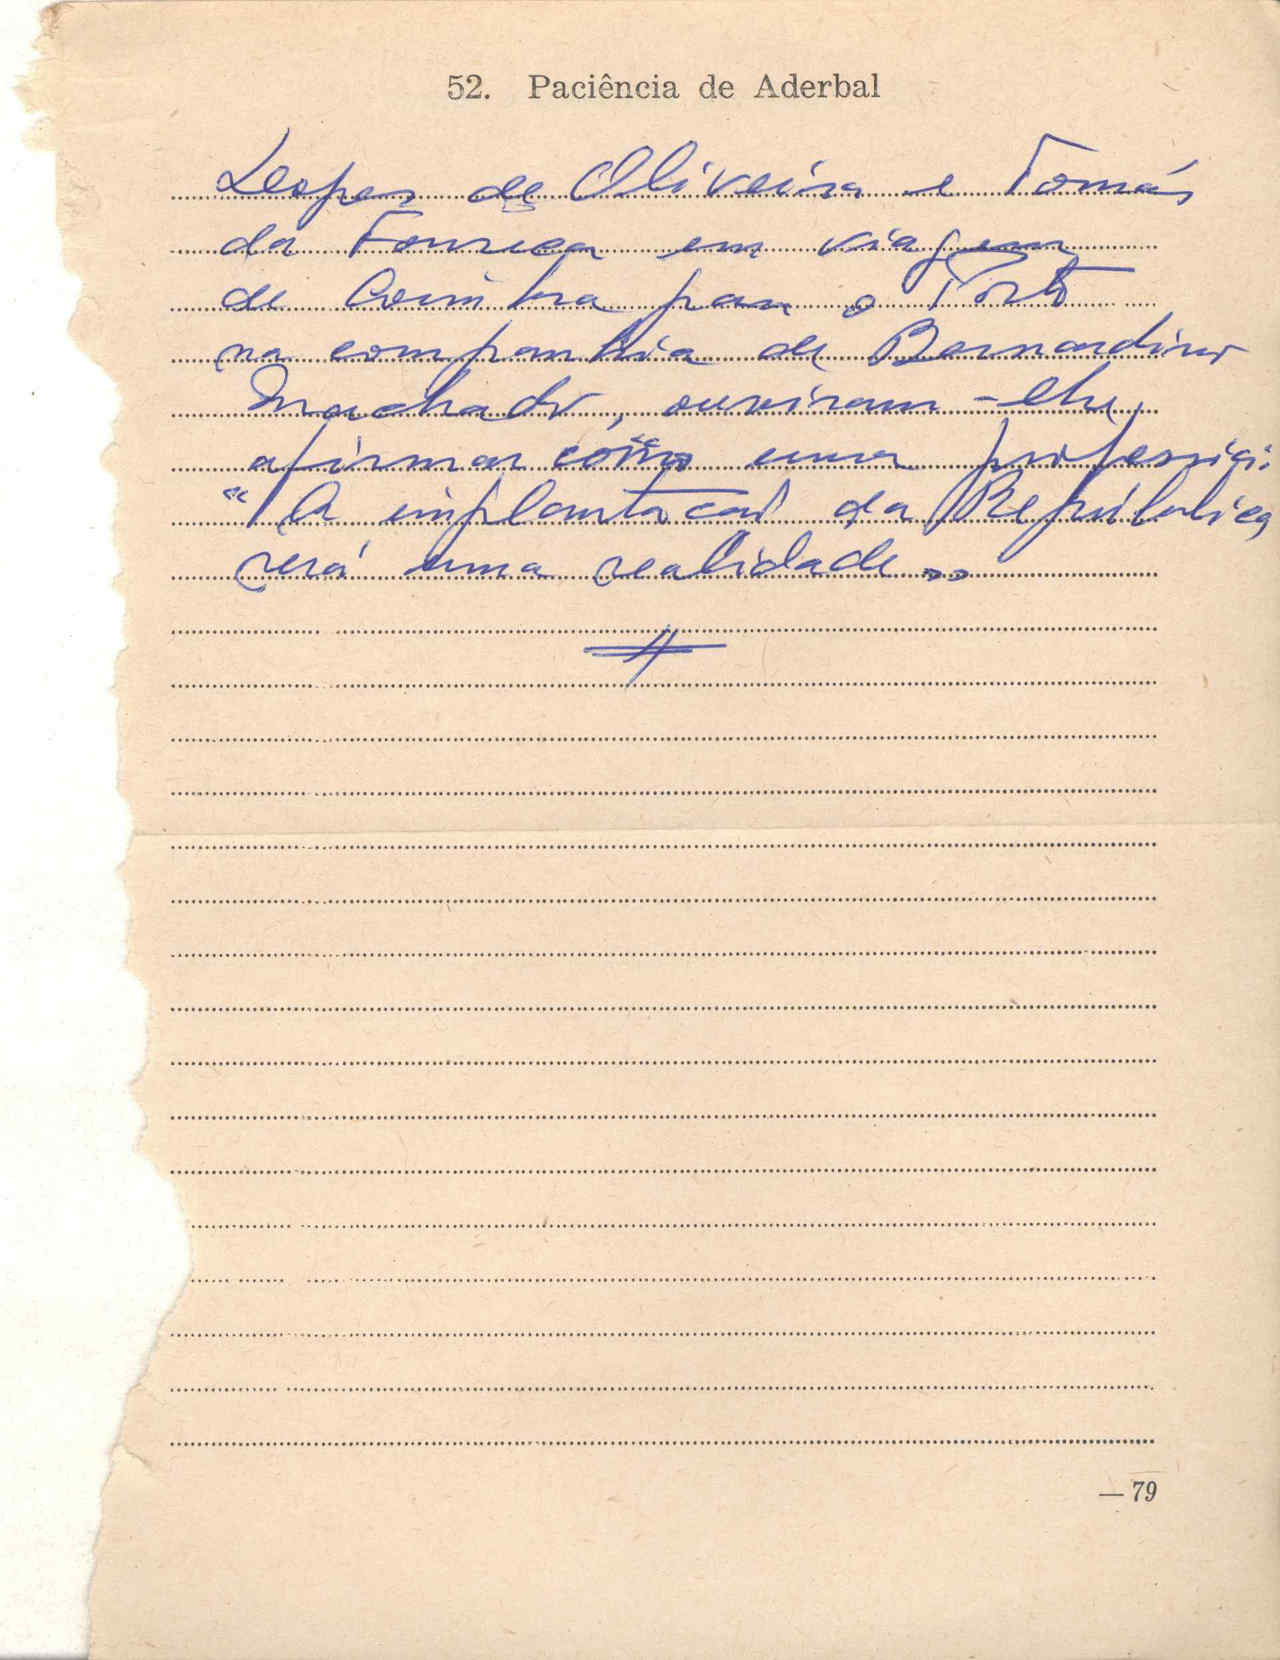 52. Paciência de Aderbal
Lopes de Oliveira e Tomás
da Fonseca em viagem
de Coimbra para o Porto
na companhia de Bernardino
Machado, ouviram-lhe
afirmar como uma profecia:
"A implantação da República,
será uma realidade...
— 79